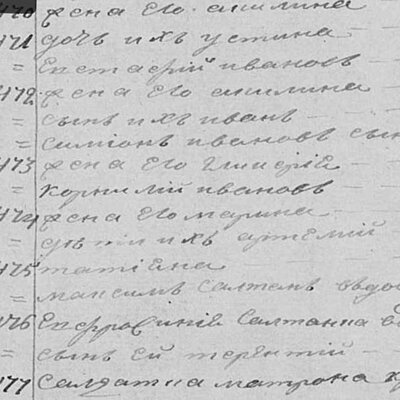 470 жена его акилина
471 дочь ихъ устина
= Евстафий ивановъ
472 жена его акилина
= сынъ ихъ иванъ
= симіонъ ивановъ сын
473 жена его
= корнилий ивановъ
474 жена его марина
= дѣти ихъ артемий
475 татіана
= максимъ Салтанъ вдо
476 Евфросиніе Салтанка
= сынъ ей терентій
477 Солдатка матрона